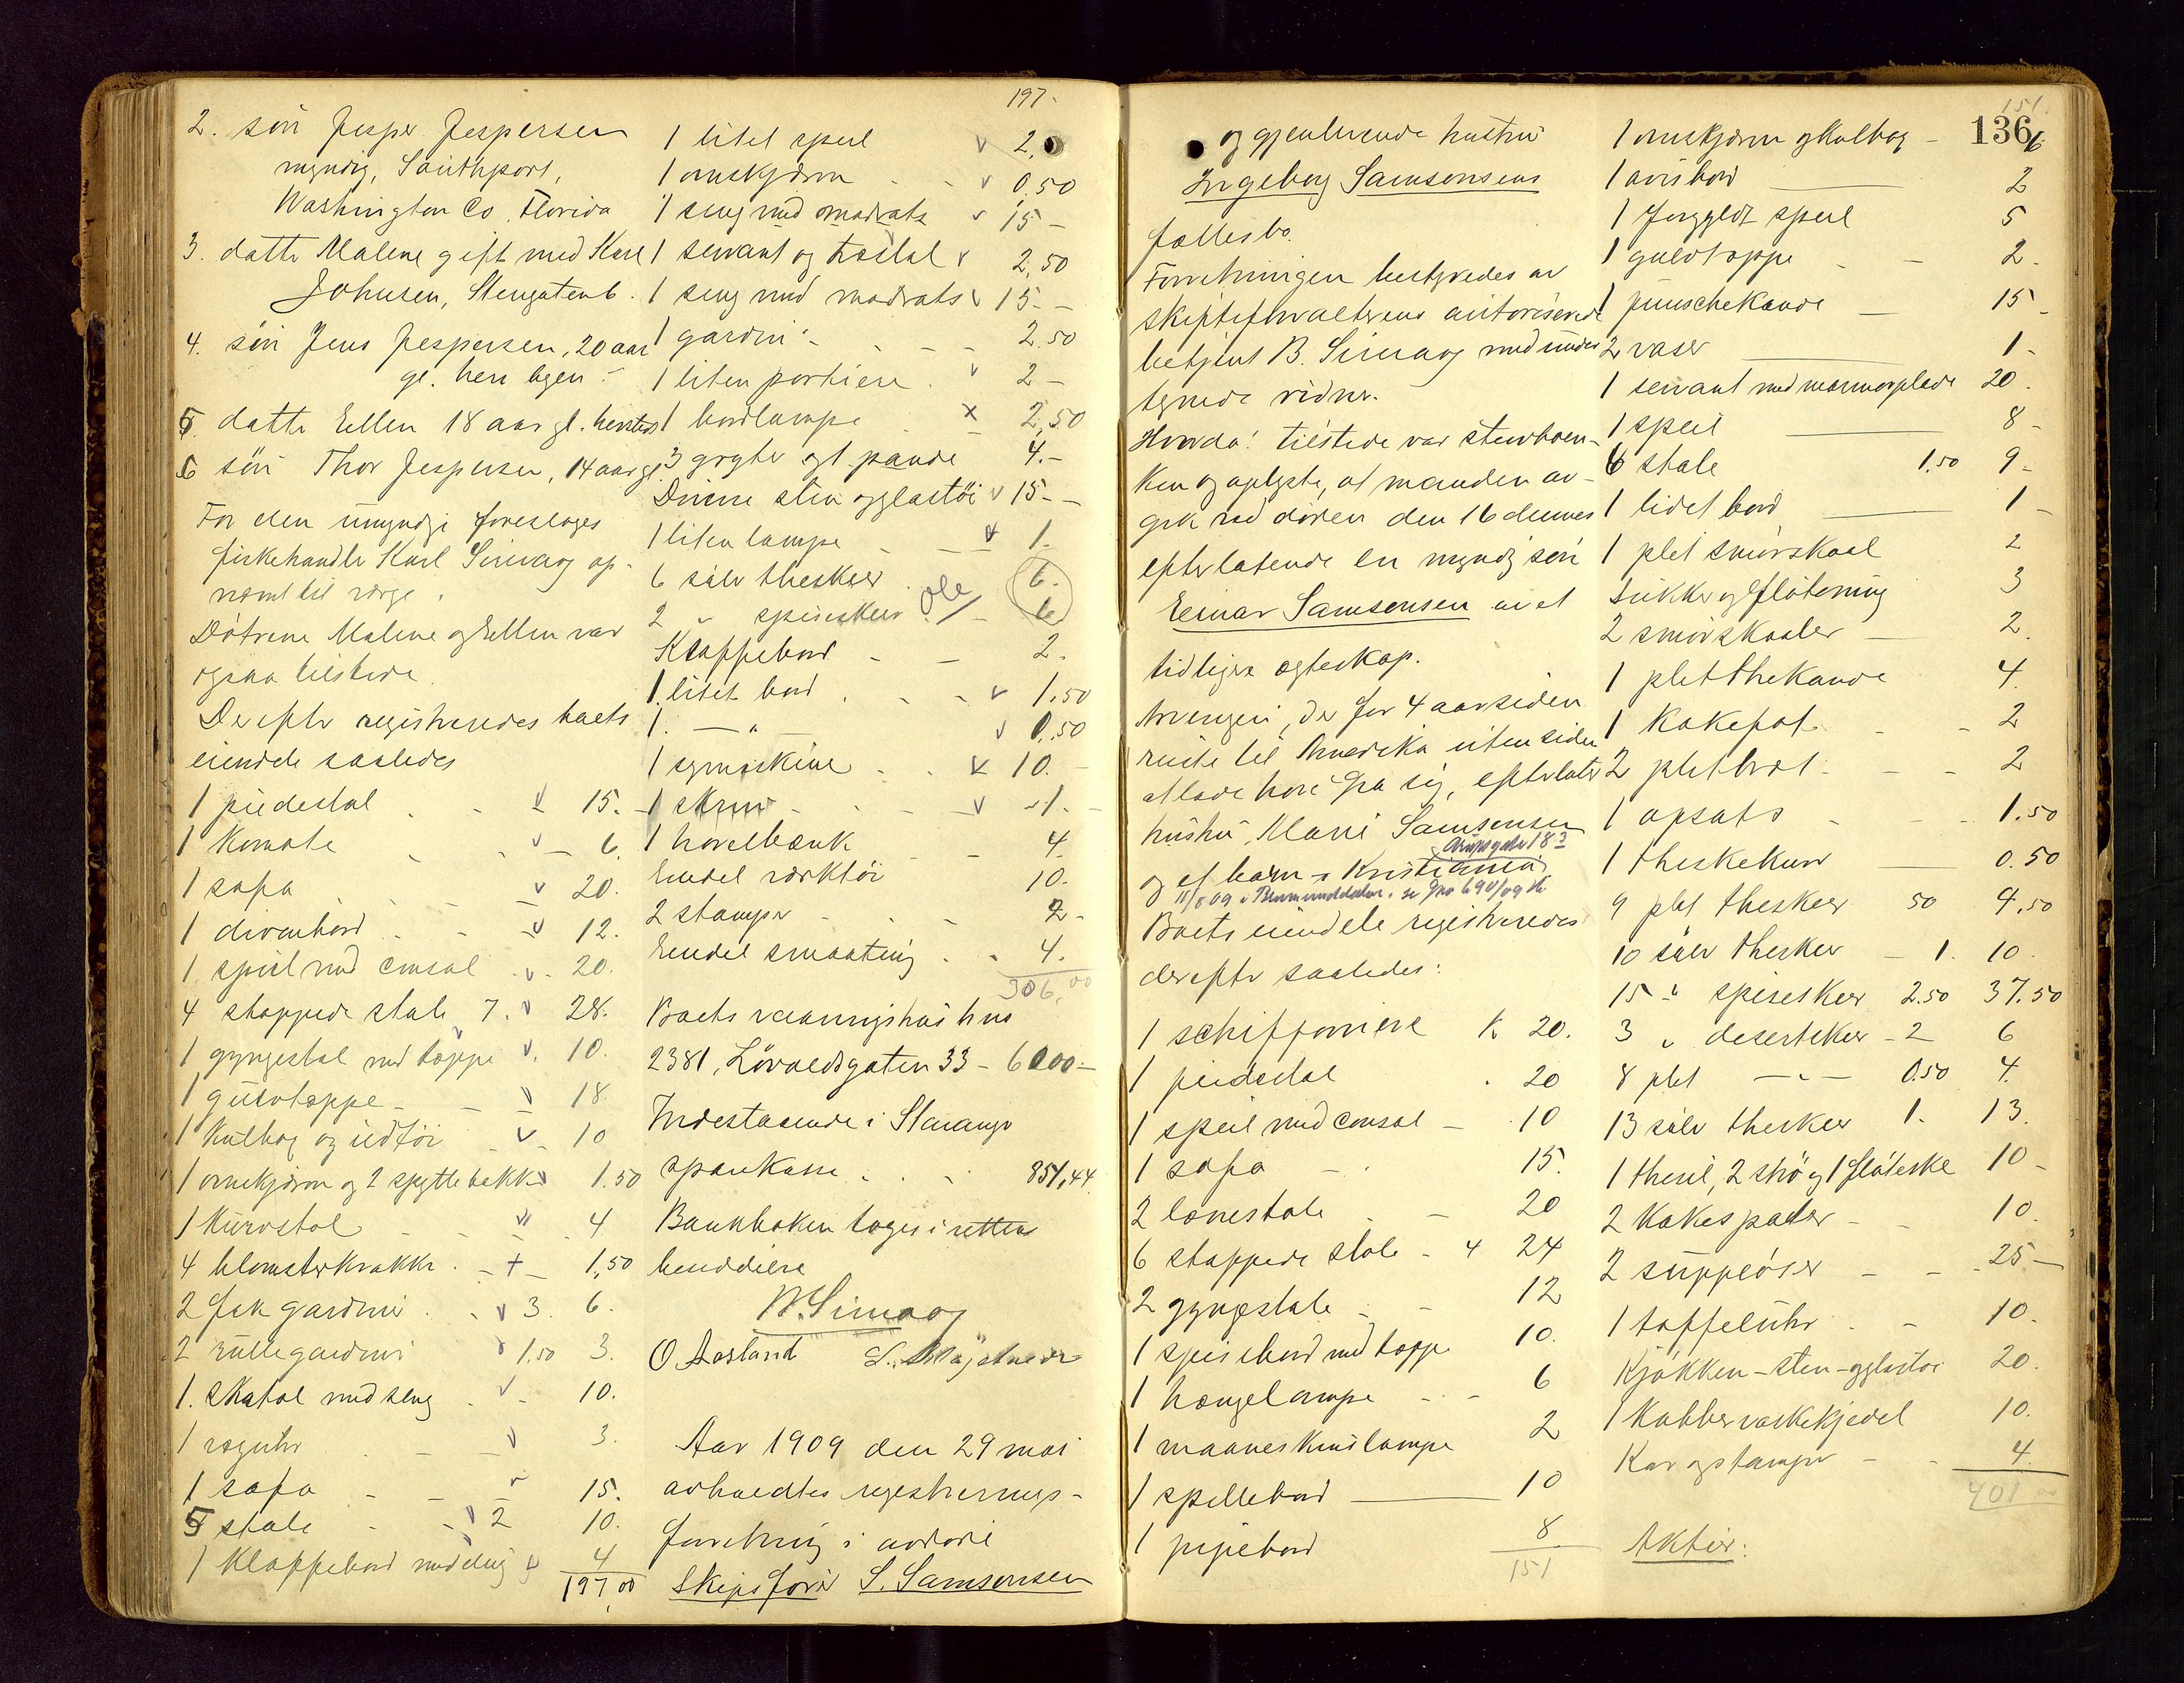 2. søn Jesper Jespersen
myndig, Southport,
Washington Co. Florida
3. datter Malene gift med Karl
Johnsen, Stengaten 6.
4. søn Jens Jespersen, 20 aar
gl. her i byen
5. datter Ellen 18 aar gl.
6 søn Thor Jespersen, 14 aar gl.
For den umyndige foresloges
fiskehandler Karl Simaog op-
nævnt til værge.
Døtrene Malene og Ellen var
ogsaa tilstede.
Derefter registreredes boets
eiendele saaledes
1 piedestal v 15.-
1 Komode v 6.
1 sofa v 20.
1 divanbord v 12.
1 speil med consol v 20.
4 stoppede stole 7. v 28.
1 gyngestol med tæppe v. 10.
1 gulvtæppe v 18.
1 Kulbox og ildtøi v 10
1 ovnskjærm og 2 spyttebakker v 1.50
1 Kurvstol v 4
4 blomsterkrakker + 1,50
2 fag gardiner v 3. 6.
2 rullegardiner v 1,50 3.
1. skatol med seng v 10.
1 væguhr v 3.
1 sofa v 15.
5 stole v 2 10.
1 Klappebord med v 4
197,00
197.
1 litet speil v 2,
1 ovnskjærm v 0,50
1 seng med madrats v 15-
1 servant og toestol v 2,50
1 seng med madrats v 15-
1 gardin 2.50
1 liten portiere v 2-
1 bordlampe x 2,50
3 gryter og 1 pande 4.-
Diverse sten og glastøi v 15-
1 liten lampe v 1.
6 sølv theskeer 6.
2 " spiseskeer Ole 6
Klappebord 2.
1. litet bord v 1.50
1. — " — v 0,50
1 symaskine v 10.-
1 skrin v 1.-
1 hovelbænk 4.
Endel værktøi 10.
2 stamper 2-
Endel smaating 4.
306,00
Boets vaaningshus hus
2381, Løvoldsgaten 33 - 6000-
Indestaaende i Stavanger
sparekasse 851,44
Bankboken toges i rettens
henddele
B. Simaog
O Aasland
Aar 1909 den 29 mai
avholdtes registrerings-
forretning i avdøde
Skipsfører S. Samsonsen
151.
136
og gjenlevende hustru
Ingeborg Samsonsens
fællesbo.
Forretningen bestyredes av
skifteforvalterens autoriserede
betjent B. Simaog med under-
tegnede vidner.
Hvorda: tilstede var stervboen-
ken og oplyste, at manden av-
gik ved døden den 16 dennes
efterlatende en myndig søn
Einar Samsonsen av et
tidligere ægteskap.
Arvingen, der for 4 aar siden
reiste til Amerika uten siden
at lade høre fra sig, efterlater
hustru Marie Samsonsen
18 3
og et barn i Kristiania
11/8 09 i Brumunddalen. se Jno 690/09
Boets eiendele registreredes
derefter saaledes:
1 schiffoniere K 20.
1 piedestal 20
1 speil med consol 10
1 sofa 15.
2 lænestole 20
6 stoppede stole 4 24
2 gyngestole 12
1 spisebord med tæppe 10.
1 hængelampe 6
1 maaneskinslampe 2
1 spillebord 10
1 pipebord 8
151
1 ovnskjærm og Kulbox 6
1 avisbord 2
1 forgyldt speil 5
1 gulvtæppe 2.
1 punschekande 15-
2 vaser 1-
1 servant med marmorplade 20.
1 speil 8-
6 stole 1,50 9-
1 lidet bord 1-
1 plet smørskaal 2
Sukker og fløtemug 3
2 smørskaaler 2.
1 plet thekande 4.
1 Kakefat 2
2 pletbræt 2
1 opsats 1.50
1 theskekurv 0.50
9 plet theskeer 50 4,50
10 sølv theskeer 1. 10.
15 " spiseskeer 2.50 37.50
3 " desertskeer 2 6
8 plet — " — 0.50 4.
13 sølv theskeer 1. 13.
1 thesil, 2 strø og 1 fløteske 10-
2 Kakespader 10.
2 suppeøser 25-
1 taffeluhr 10.
Kjøkken-sten-og glastøi 20.
1 Kobbervaskekjedel 10.
Kar og stamper 4.
401 00
Aktier: